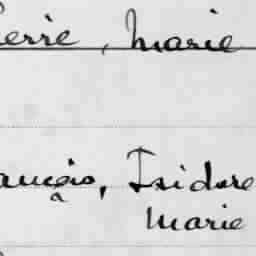 erre, Marie
ançois, Isidore
Marie